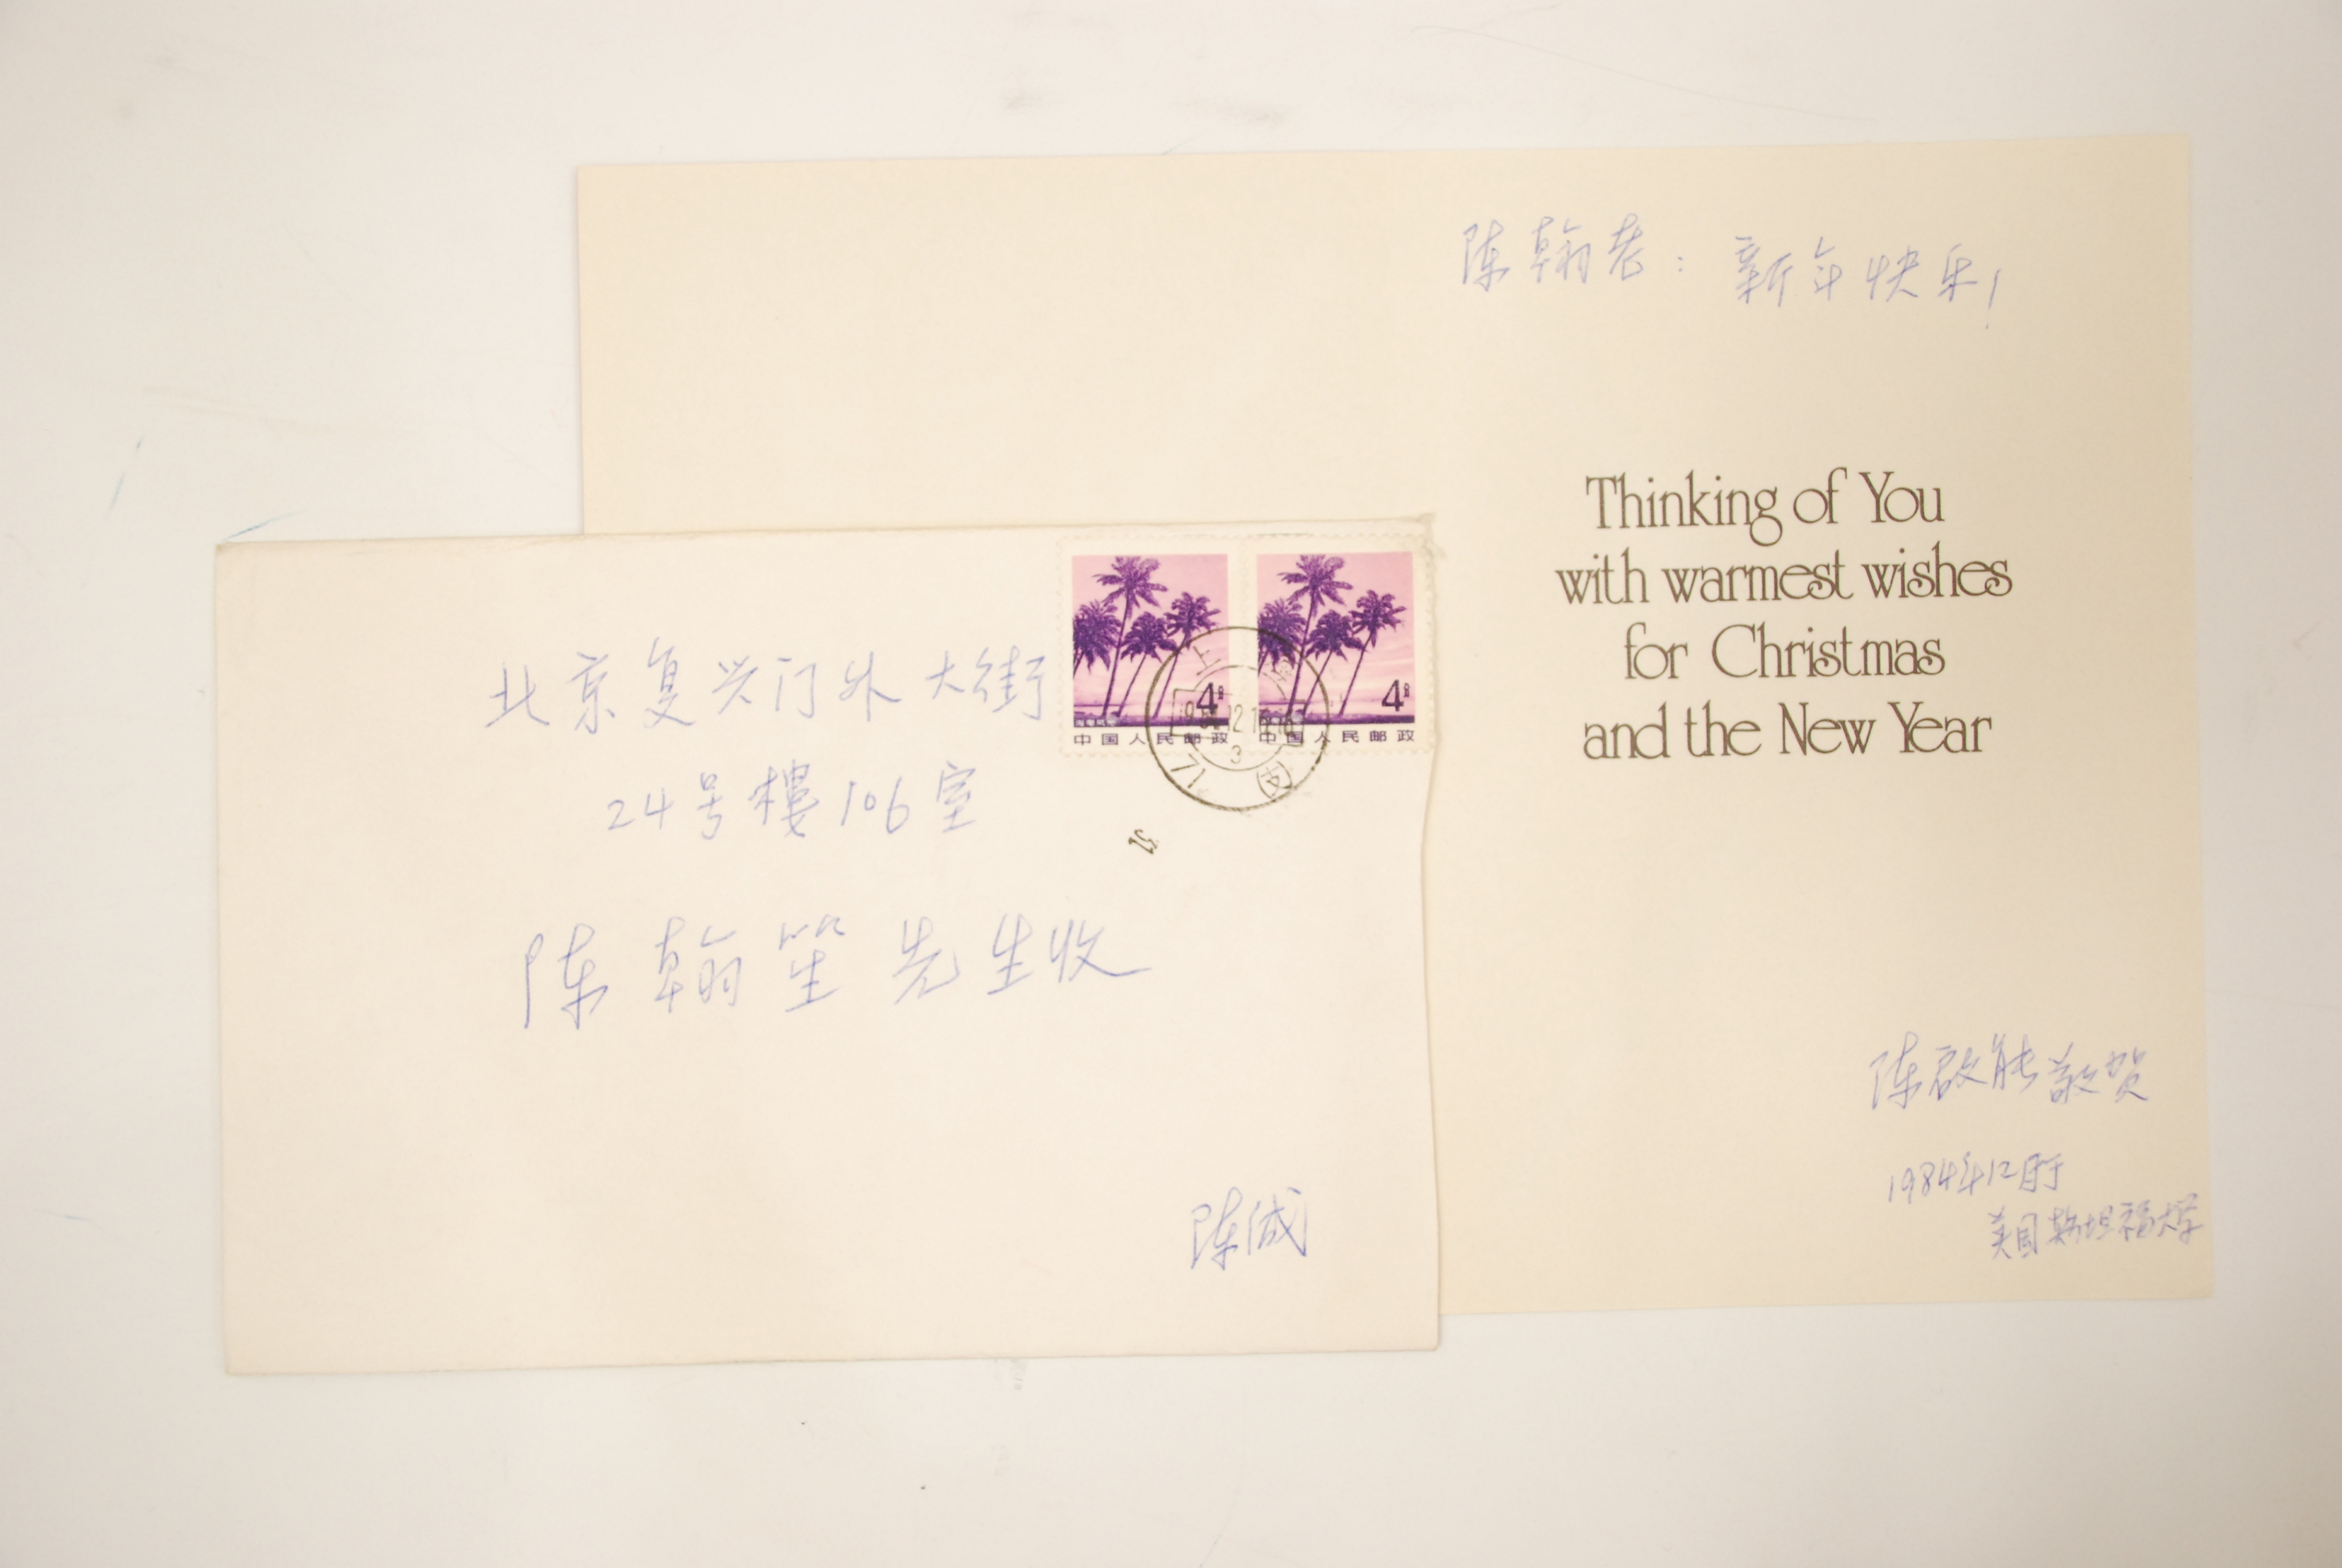 陈翰老：新年快乐！
Thinking of You
with warmest wishes
for Christmas
and the New Year
陈启能敬贺
1984年12月于
美国斯坦福大学
北京复兴门外大街
24号樓106室
陈翰笙先生收
陈缄
4分
中国人民邮政
4分
中国人民邮政
上海
3
17
支
51